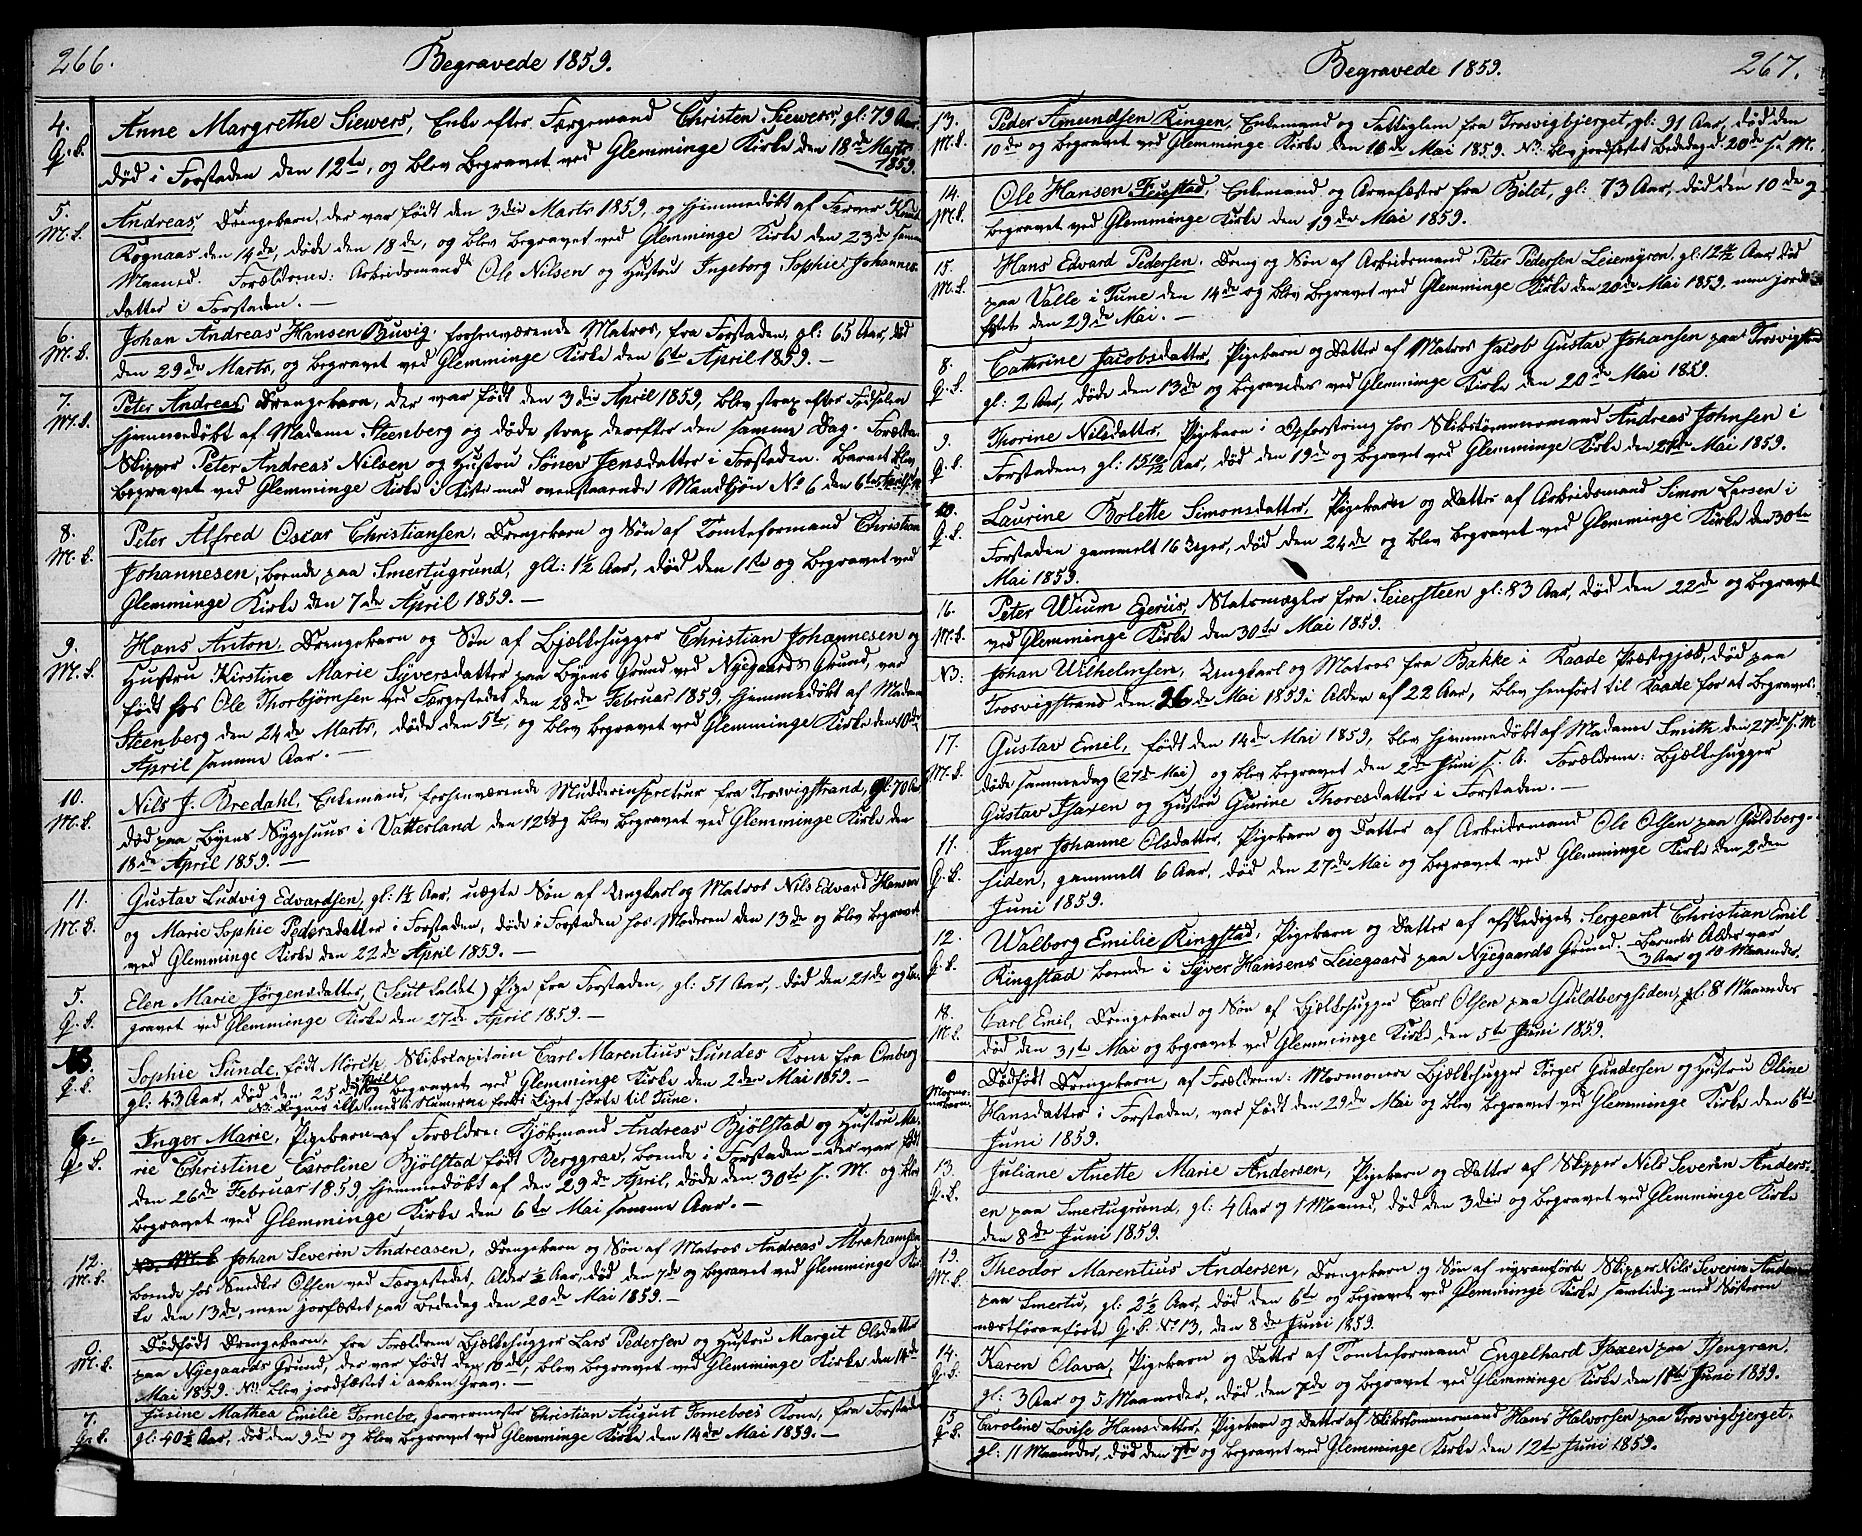 266.
Begravede 1859.
4. Q.K. Anne Margrethe Siewers, Enke efter Færgemand Christen Siewers, gl: 79 Aar.
død i Forstaden den 12te, og blev begravet ved Glemminge Kirke den 18de Marts 1859.
5. M.K. Andreas, Drengebarn, der var født den 3die Marts 1859, og hjemmedøbt af Farver
Rognaas den 14de, døde den 18de, og blev begravet ved Glemminge Kirke den 23de samme
Maaned. Forældrene: Arbeidsmand Ole Nilsen og Hustru Ingeborg Sophie Johannes-
datter i Forstaden. —
6. M.K. Johan Andreas Hansen Buvig, forhenværende Matros, fra Forstaden, gl: 65 Aar, død
den 29de Marts, og begravet ved Glemminge Kirke den 6te April 1859. —
7. M.K. Peter Andreas, Drengebarn, der var født den 3die April 1859, blev strax efter Fødselen
hjemmedøbt af Madame Steenberg og døde strax derefter den samme Dag. Foræld:
Skipper Peter Andreas Nilsen og Hustru Jensdatter i Forstaden. Barnet blev
begravet ved Glemminge Kirke i Kiste med ovenstaaende Mandkjøn No 6 den 6te
8. M.K. Peter Alfred Oscar Christiansen, Drengebarn og Søn af Tomteformand Christian
Johannesen, boende paa Smertugrund, gl: 1½ Aar, død den 1ste og begravet ved
Glemminge Kirke den 7de April 1859. —
9. M.K. Hans Anton, Drengebarn og Søn af Bjælkehugger Christian Johannesen og
Hustru Kirstine Marie Syversdatter paa Byens Grund ved Nyegaards Grund, var
født hos Ole Thorbjørnsen ved Færgestedet den 28de Februar 1859, hjemmedøbt af Madame
Steenberg den 24de Marts, døde den 5te, og blev begravet ved Glemminge Kirke den 10de
April samme Aar. —
10. M.K. Nils J. Bredahl, Enkemand, forhenværende Mudderinspecteur fra Trosvigstrand, gl: 70 Aar
død paa Byens Sygehuus i Vatterland den 12te og blev begravet ved Glemminge Kirke den
18de April 1859. —
11. M.K. Gustav Ludvig Edvardsen, gl: Aar, uægte Søn af Ungkarl og Matros Nils Edvard Hansen
og Marie Sophie Pedersdatter i Forstaden, døde i Forstaden hos Moderen den 13de og blev begravet
ved Glemminge Kirke den 22de April 1859. —
5. Q.K. Elen Marie Jørgensdatter, Pige fra Forstaden, gl: 51 Aar, død den 21de og be-
gravet ved Glemminge Kirke den 27de April 1859. —
Q.K. Sophie Sunde, født Mörch, Skibscapitain Carl Marentius Sundes Kone fra Omberg
gl: 43 Aar, død den 25de April og begravet ved Glemminge Kirke den 2den Mai 1859. —
NB: regnes ikke med i Numerne fordi Liget hørte til Tune.
6. Q.K. Inger Marie, Pigebarn af Forældre: Kjøbmand Andreas Bjölstad og Hustru Ma-
rie Christine Caroline Bjölstad født Berggrav, boende i Forstaden – der var født
den 26de Februar 1859, hjemmedøbt af den 29de April, døde den 30te s. M. og blev
begravet ved Glemminge Kirke den 6te Mai samme Aar. —
12. M.K. Johan Severin Andreasen, Drengebarn og Søn af Matros Andreas Abrahamsen
boende hos Snedker Olsen ved Færgestedet, Alder ½ Aar, død den 7de og begravet ved Glemminge Kir-
ke den 13de, men jordfæstet paa Bededag den 20de Mai 1859. —
0. M.K. Dødfødt Drengebarn, fra Forældrene Bjælkehugger Lars Pedersen og Hustru Margit Olsdatter
paa Nyegaards Grund, der var født den 10de, blev begravet ved Glemminge Kirke den 14de
Mai 1859. NB: blev jordfæstet i aaben Grav. —
7. Q.K. Josine Mathea Emilie Torneboe, Farvermester Christian August Torneboes Kone, fra Forstaden
gl: 40½ Aar, død den 9de og blev begravet ved Glemminge Kirke den 14de Mai 1859. —
Begravede 1859.
267.
13. M.K. Peder Amundsen Ringen, Enkemand og Fattiglem fra Trosvigbjerget, gl: 91 Aar, død den
10de og begravet ved Glemminge Kirke den 16de Mai 1859. NB: blev jordfæstet Bededag d: 20de s. M.
14. M.K. Ole Hansen Fiustad, Enkemand og Arvefæster fra Bilet, gl: 73 Aar, død den 10de og
begravet ved Glemminge Kirke den 19de Mai 1859.
15. M.K. Hans Edvard Pedersen, Dreng og Søn af Arbeidsmand Peter Pedersen Leiemyren, gl: 12 Aar, død
paa Valle i Tune den 14de og blev begravet ved Glemminge Kirke den 20de Mai 1859. men jordfæ-
stet den 29de Mai. —
8. Q.K. Cathrine Jacobsdatter, Pigebarn og Datter af Matros Jacob Gustav Johansen paa Trosvigstrand
gl: 2 Aar, døde den 13de og begravedes ved Glemminge Kirke den 20de Mai 1859.
9. Q.K. Thorine Nilsdatter, Pigebarn i Opfostring hos Skibstømmermand Andreas Johnsen i
Forstaden, gl: 15 10/12 Aar, død den 19de og begravet ved Glemminge Kirke den 24de Mai 1859.
10. Q.K. Laurine Bolette Simonsdatter, Pigebarn og Datter af Arbeidsmand Simon Larsen i
Forstaden gammelt 16 Uger, død den 24de og blev begravet ved Glemminge Kirke den 30te
Mai 1859.
16. M.K. Peter Wium Egerus, Statsmægler fra Seiersteen gl: 83 Aar, død den 22de og begravet
ved Glemminge Kirke den 30te Mai 1859.
NB: Johan Wilhelmsen, Ungkarl og Matros fra Bakke i Raade Præstegjæld, død paa
Trosvigstrand den 26de Mai 1859 i Alder af 22 Aar, blev henført til Raade for at begraves.
17. M.K. Gustav Emil, født den 14de Mai 1859, blev hjemmedøbt af Madame Smith den 27de s. M.
døde sammedag (27de Mai) og blev begravet den 2de Juni s. A. Forældrene: Bjælkehugger
Gustav Isaxen og Hustru Gurine Thoresdatter i Forstaden. —
11. Q.K. Inger Johanne Olsdatter, Pigebarn og Datter af Arbeidsmand Ole Olsen paa Guldberg-
siden, gammelt 6 Aar, død den 27de Mai og begravet ved Glemminge Kirke den 2den
Juni 1859.
12. Q.K. Walborg Emilie Ringstad, Pigebarn og Datter af afskediget Sergeant Christian Emil
Ringstad boende i Syver Hansens Leiegaard paa Nyegaards Grund. Barnets Alder var 3 Aar og 10 Maaneder.
18. M.K. Carl Emil, Drengebarn og Søn af Bjælkehugger Carl Olsen paa Guldbergsiden, gl: 8 Maaneder
død den 31te Mai og begravet ved Glemminge Kirke den 5te Juni 1859.
0 Dødfødt Drengebarn, af Forældrene: Mormonere Bjælkehugger Torger Gundersen og Hustru Oline
Hansdatter i Forstaden, var født den 29de Mai og blev begravet ved Glemminge Kirke den 6te
Juni 1859.
13. Q.K. Juliane Anette Marie Andersen, Pigebarn og Datter af Skipper Nils Severin Anders-
en paa Smertugrund, gl: 4 Aar og 1 Maaned, død den 3die og begravet ved Glemminge Kirke
den 8de Juni 1859.
19. M.K. Theodor Marentius Andersen, Drengebarn og Søn af nysanførte Skipper Nils Severin Andersen
paa Smertu, gl: 2½ Aar, død den 6te og begravet ved Glemminge Kirke samtidig med Søsteren
næstforanførte Q.K. No 13, den 8de Juni 1859.
14. Q.K. Karen Olava, Pigebarn og Datter af Tomteformand Engelhard Isaxen paa Isengran.
gl: 3 Aar og 5 Maaneder, død den 7de og begravet ved Glemminge Kirke den 11te Juni 1859.
15 Q.K. Caroline Lovise Hansdatter, Pigebarn og Datter af Skibstømmermand Hans Halvorsen paa Trosvigbjerget,
gl: 11 Maaneder, død den 7de og begravet ved Glemminge Kirke den 12te Juni 1859.